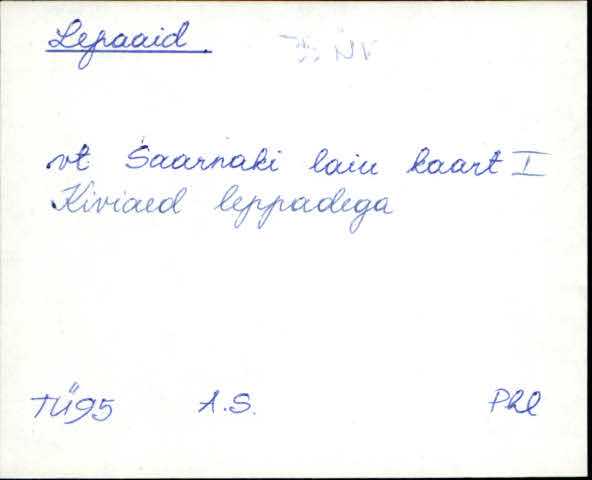 Lepaaid.
vt Saarnaki laiu kaart I
Kiviaed leppadega
TÜ95 A.S. Phl